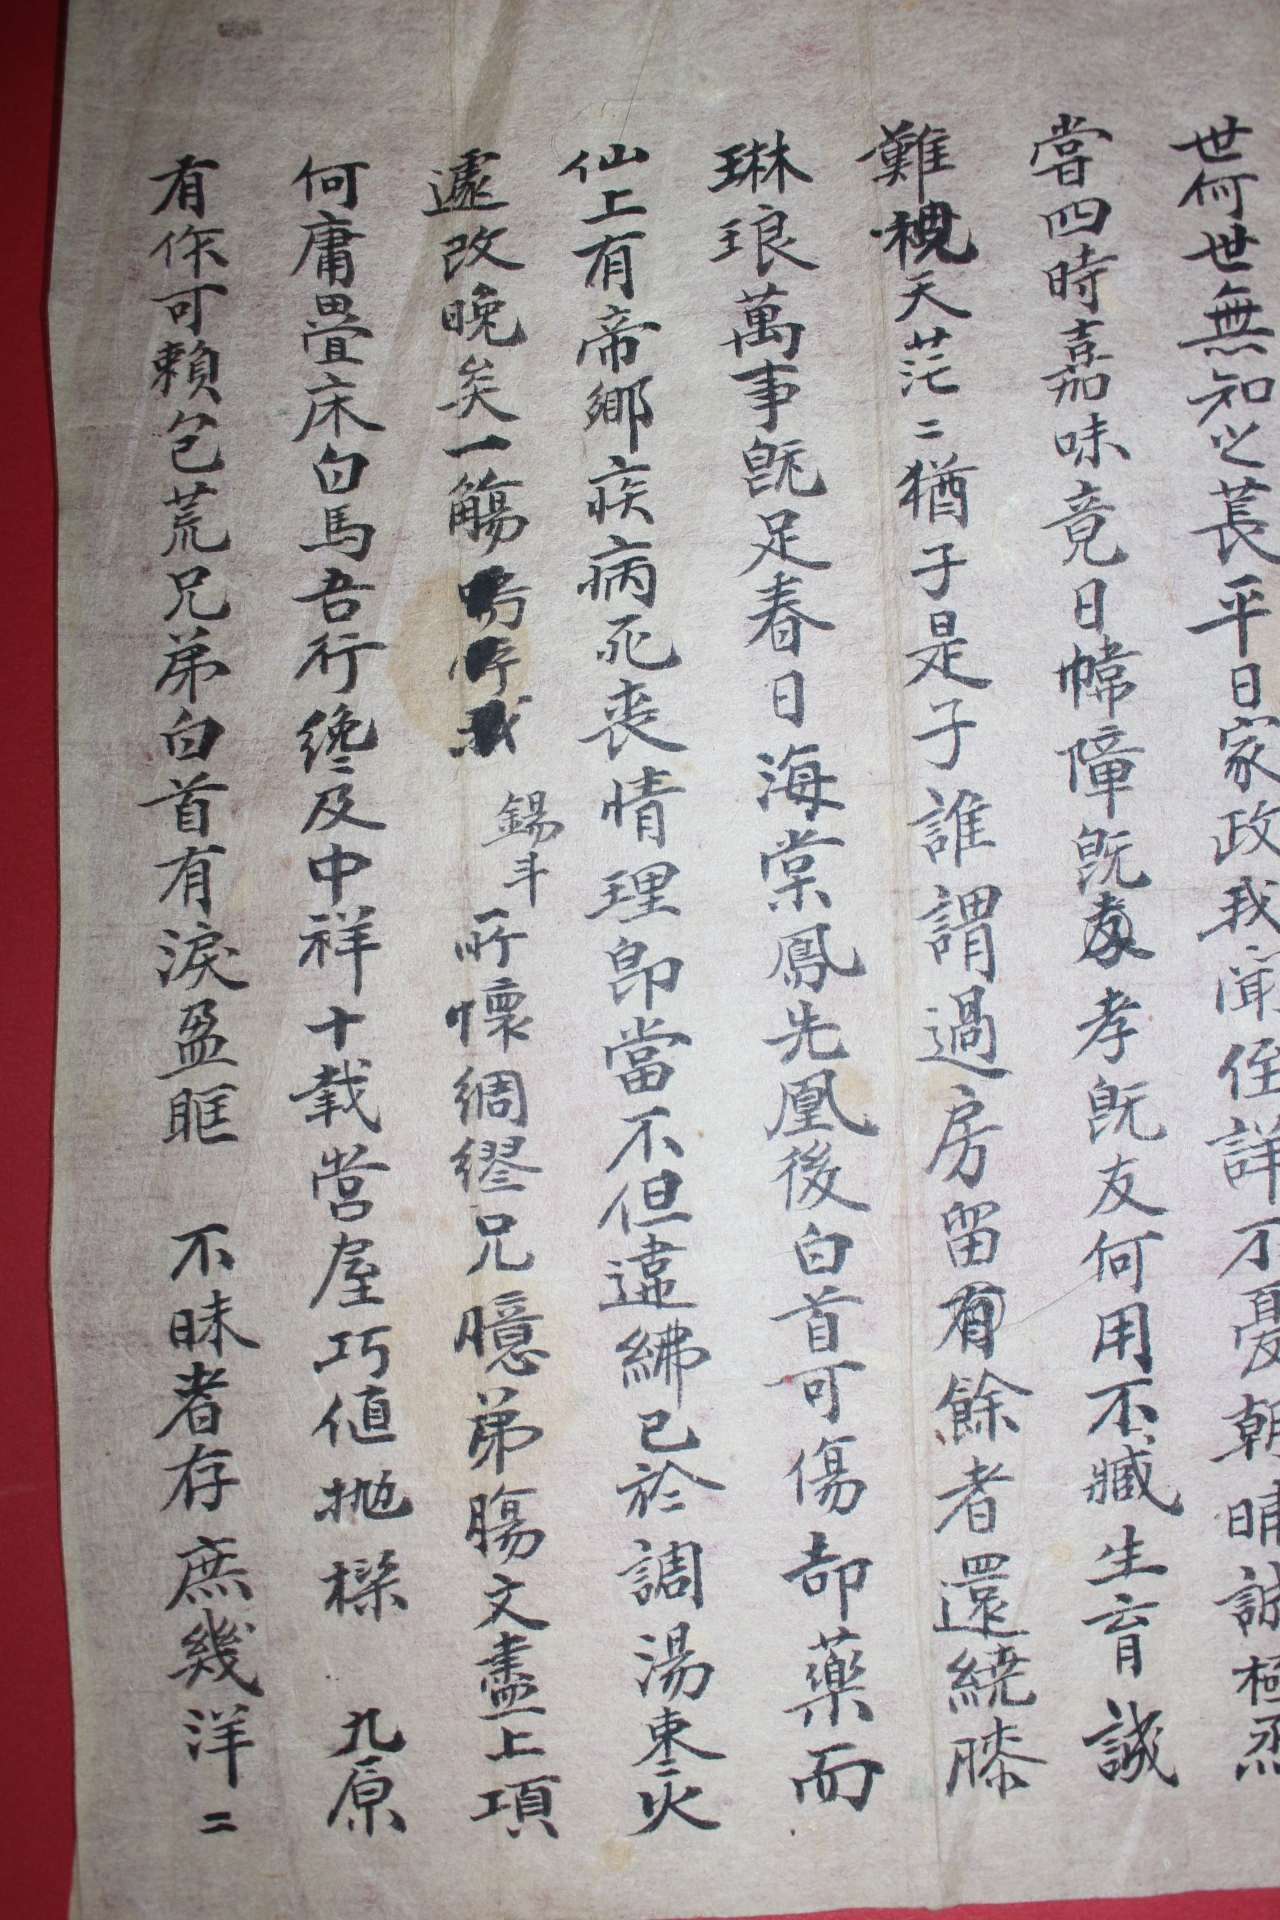 世何世無知之萇平日家政我聞侄詳不憂朝晡誠極烝
嘗四時嘉味竟日幃障旣孝旣友何用不臧生育誠
難天茫二猶子是子誰謂過房留有餘者還繞膝
琳琅萬事旣足春日海棠鳳先凰後白首可傷却藥而
仙上有帝鄉疾病死喪情理卽當不但違紼已於調湯棗火
遽改晚矣一觴嗚呼我
錫斗
所懷綢繆兄臆弟腸文盡上項
何庸疊床白馬吾行纔及中祥十載営屋巧値抛樑 九原
有作可賴包荒兄弟白首有淚盈眶 不昧者存庶幾洋二